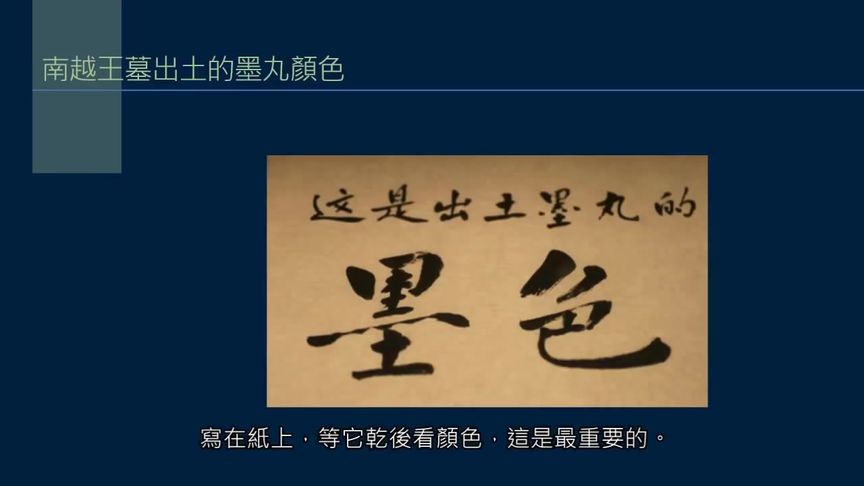 南越王墓出土的墨丸顏色
这是出土墨丸的
墨色
寫在紙上，等它乾後看顏色，這是最重要的。